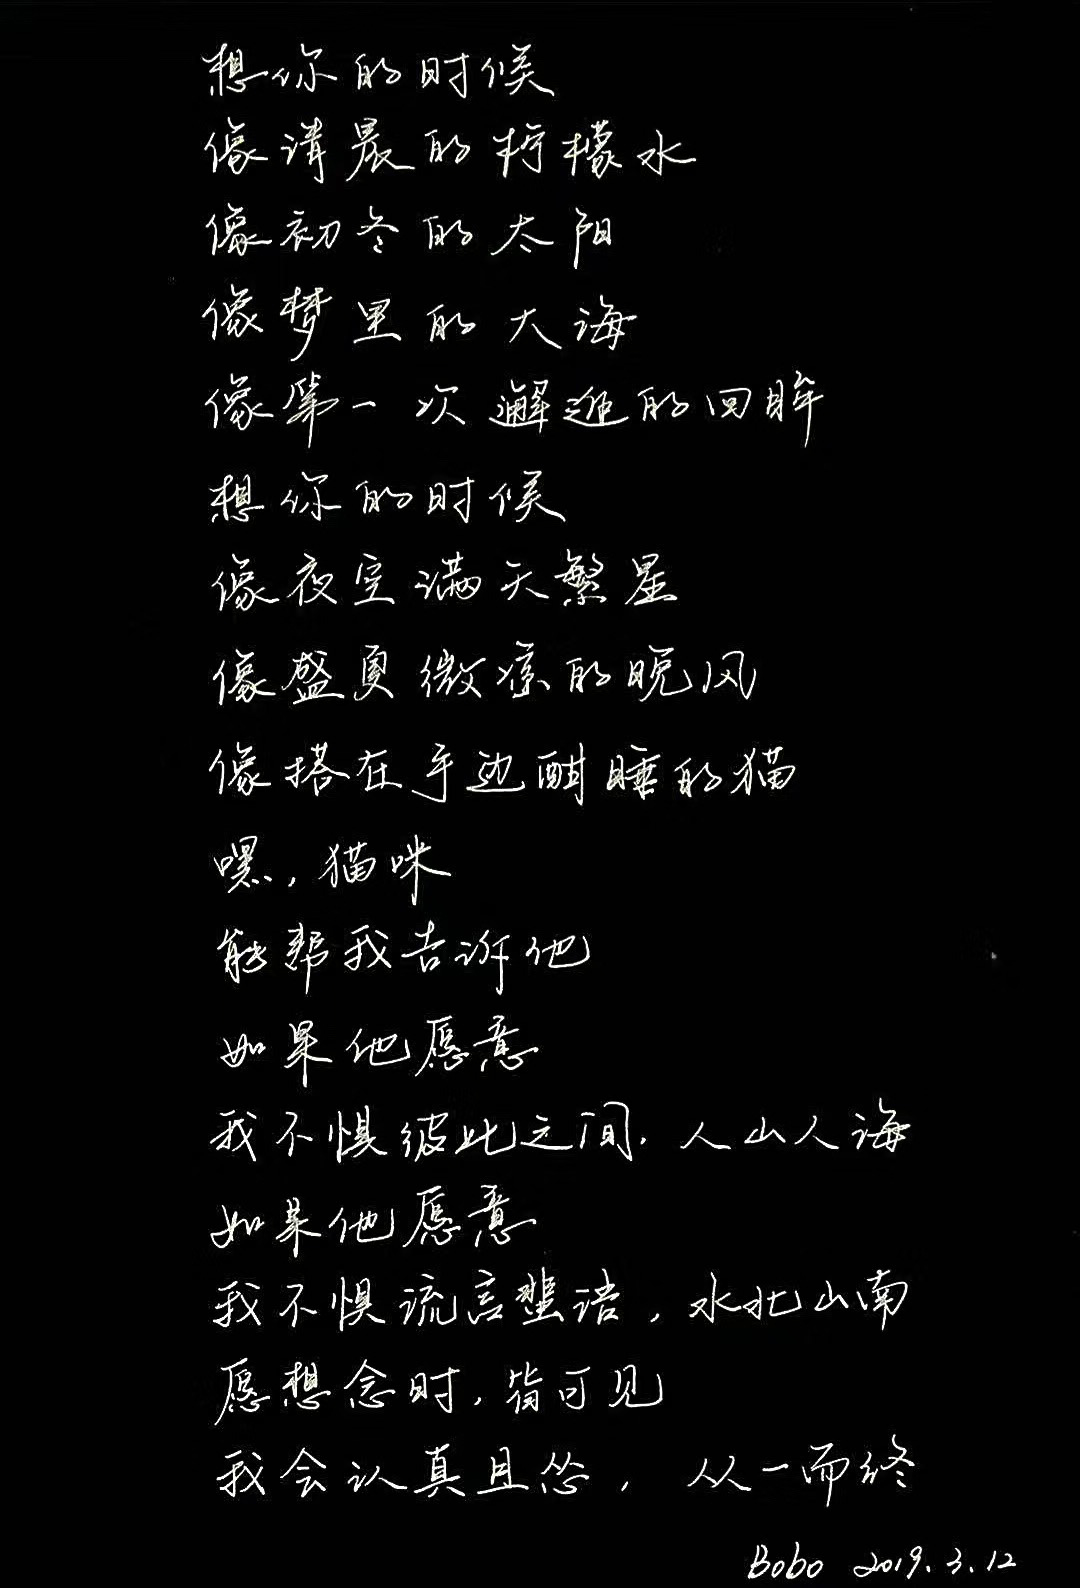 想你的时候
像清晨的柠檬水
像初冬的太阳
像梦里的大海
像第一次邂逅的回眸
想你的时候
像夜空满天繁星
像盛夏微凉的晚风
像搭在手边酣睡的猫
嘿，猫咪
能帮我告诉他
如果他愿意
我不惧彼此之间，人山人海
如果他愿意
我不惧流言蜚语，水北山南
愿想念时，皆可见
我会认真且怂，从一而终
Bobo 2019.3.12